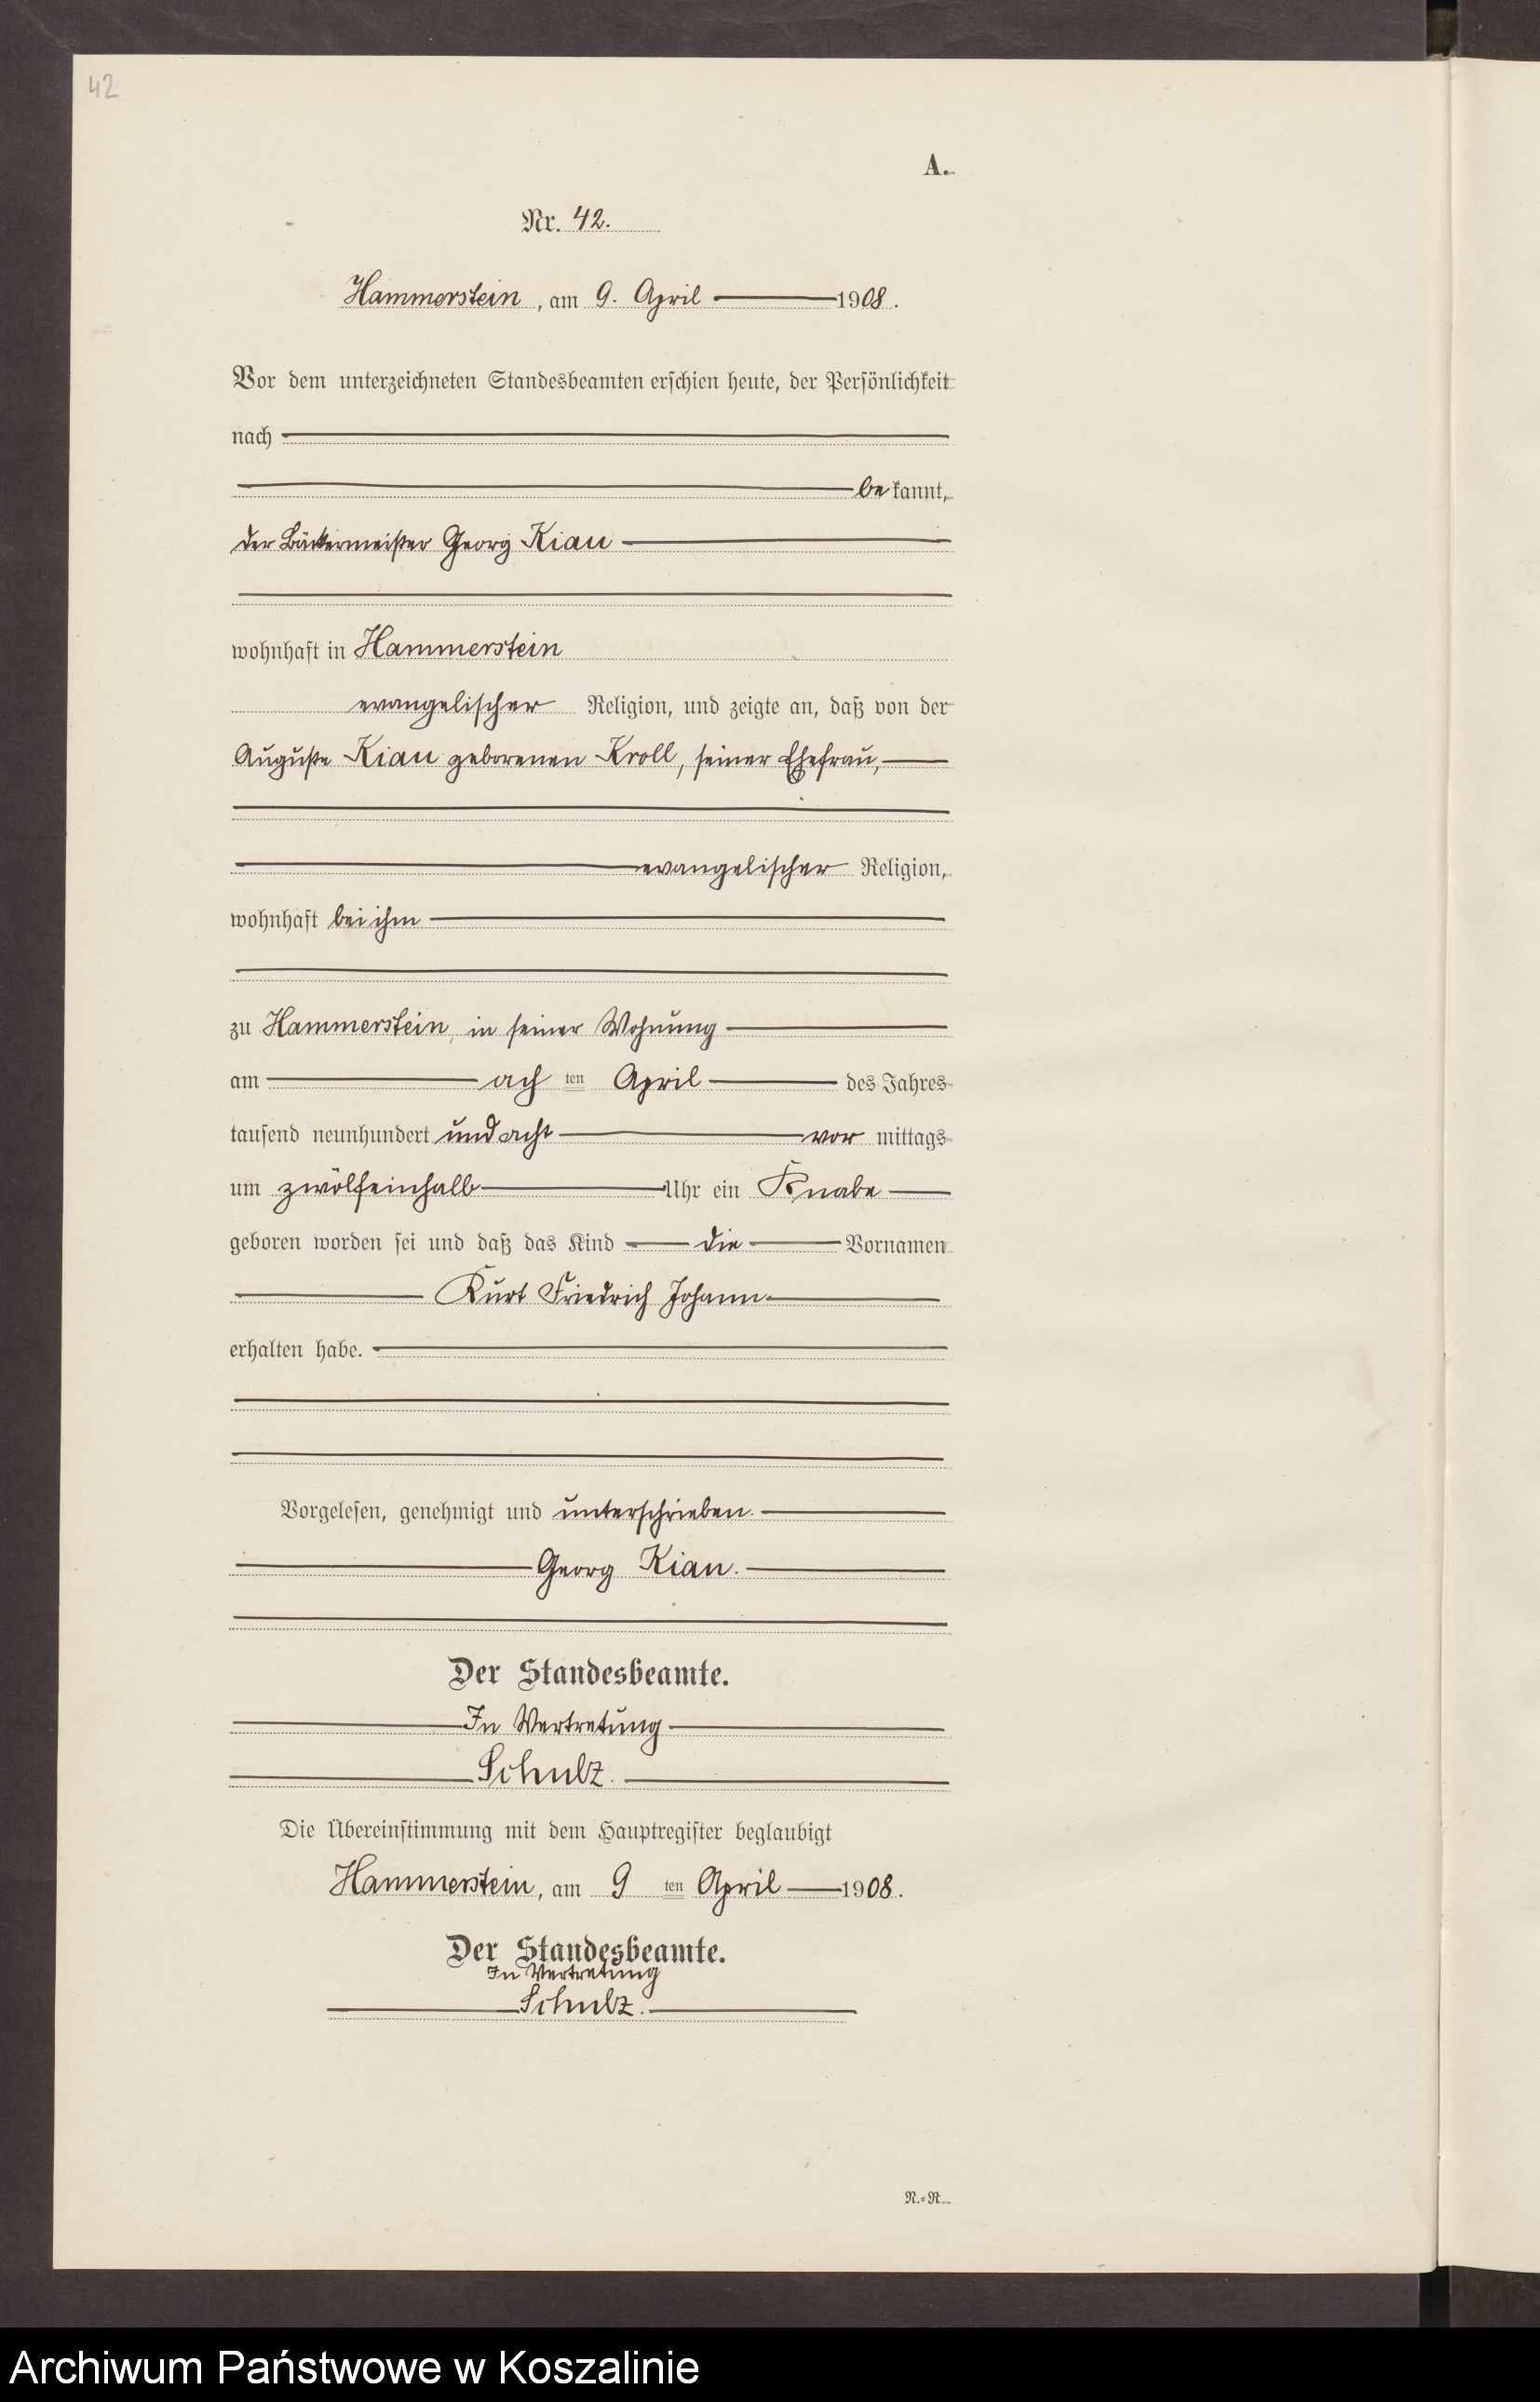 42
A.
Nr. 42.
Hammerstein, am 9. April 1908.
Vor dem unterzeichneten Standesbeamten erschien heute, der Persönlichkeit
nach
be kannt,
der Bäckermeister Georg Kiau
wohnhaft in Hammerstein
evangelischer Religion, und zeigte an, daß von der
Auguste Kiau geborenen Kroll, seiner Ehefrau,
evangelischer Religion,
wohnhaft bei ihm
zu Hammerstein, in seiner Wohnung
am ach ten April des Jahres
tausend neunhundert und acht vor mittags
um zwölfeinhalb Uhr ein Knabe
geboren worden sei und daß das Kind die Vornamen
Kurt Friedrich Johann
erhalten habe.
Vorgelesen, genehmigt und unterschrieben.
Georg Kiau.
Der Standesbeamte.
In Vertretung
Schulz.
Die Übereinstimmung mit dem Hauptregister beglaubigt
Hammerstein, am 9 ten April 1908.
Der Standesbeamte.
In Vertretung
Schulz.
N.=R.
Archiwum Państwowe w Koszalinie